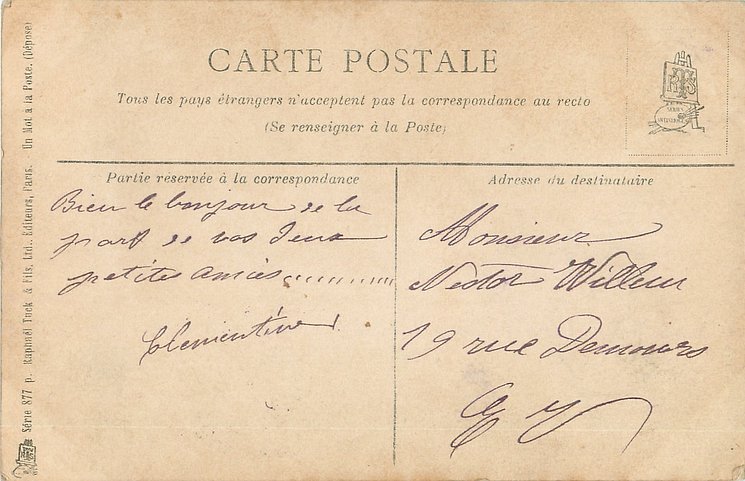 CARTE POSTALE
Tous les pays étrangers n'acceptent pas la correspondance au recto
(Se renseigner à la Poste)
Partie réservée à la correspondance
Bien le bonjour de la
part de vos deux
petites amies
Clementine
Adresse du destinataire
Monsieur
Nestor Willem
19 rue Demours
E V
Série 877 p. Raphaël Tuck & Fils, Ltd., Editeurs, Paris. Un Mot à la Poste. (Déposé)